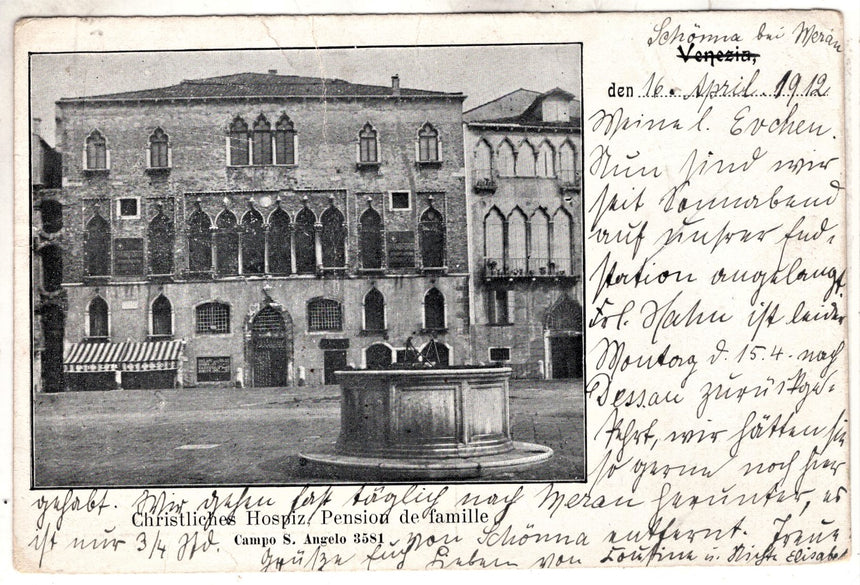 Schönna bei Meran
Venezia,
den 16. April 1912
Meine l. Evchen.
Nun sind wir
seit Sonnabend
auf unsrer End-
station angelangt.
Frl. Hahn ist leider
Montag d. 15.4. nach
Dessau zurückge-
kehrt, wir hätten sie
so gerne noch hier
gehabt. Wir gehen fast täglich nach Meran herunter, es
ist nur 3/4 Std. von Schönna entfernt. Treue
Grüße Euch Lieben von Cousine u. Nichte Elisabet
Christliches Hospiz, Pension de famille
Campo S. Angelo 3581